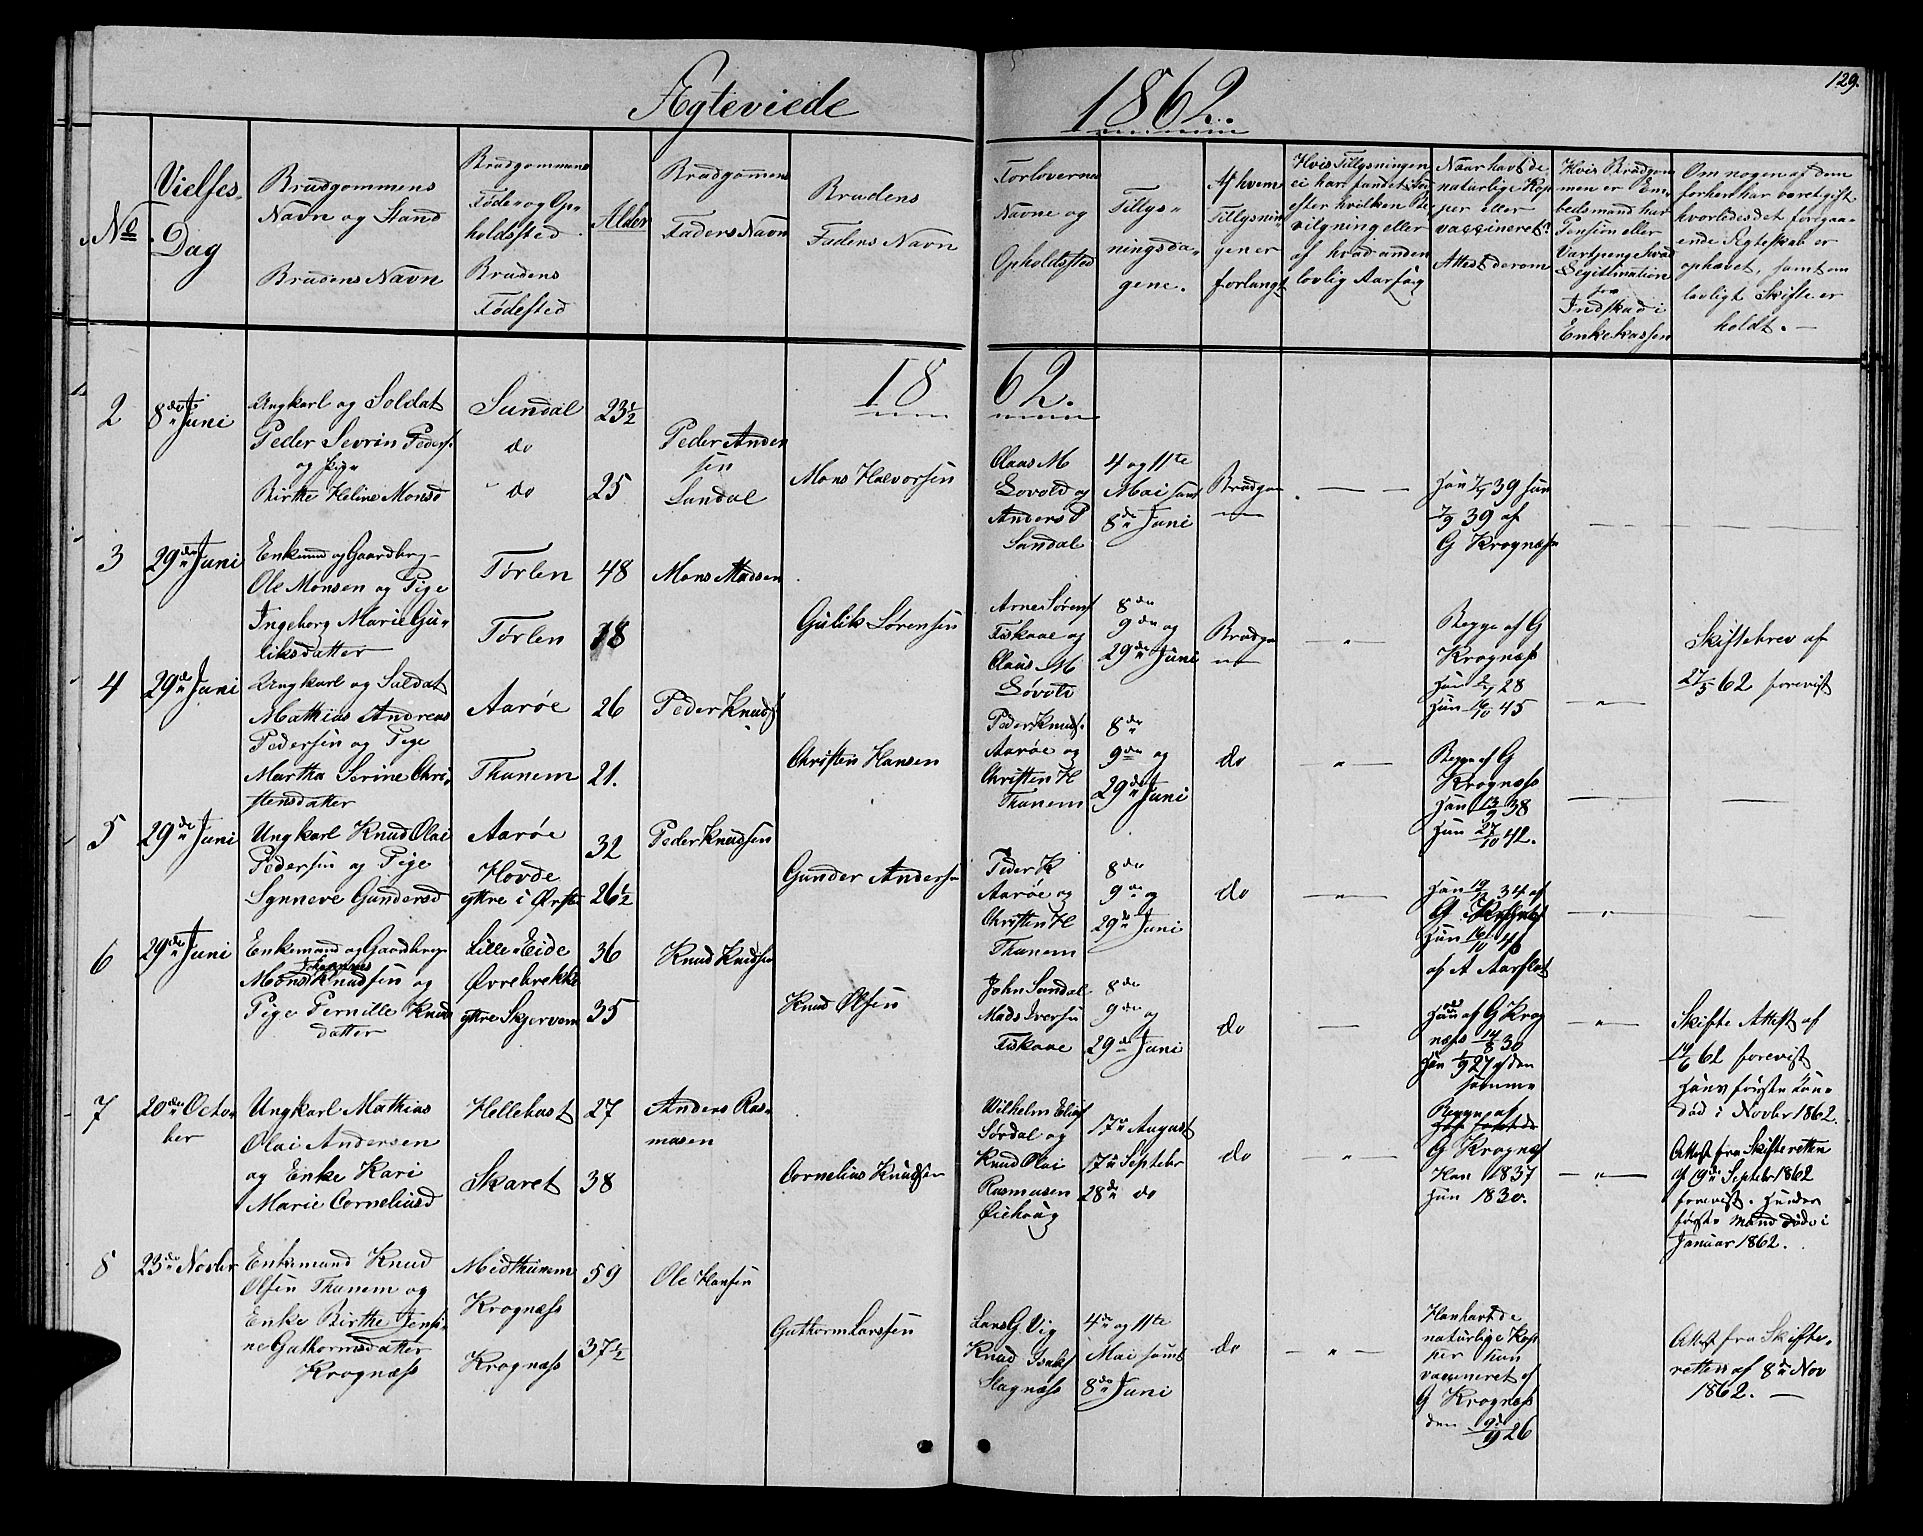 Ægteviede
1862.
129.
No
Vielses-
Dag
Brudgommens
Navn og Stand
Brudens Navn
Brudgommens
Føde- og Op-
holdssted
Brudens
Fødested
Alder
Brudgommens
Faders Navn
Brudens
Faders Navn
Forlovernes
Navne og
Opholdssted
Tillys-
ningsda-
gene.
Af hvem
Tillysnin-
gen er
forlangt
Hvis Tillysningen
ei har fundet Sted
efter hvilken Be
vilgning eller
af hvad anden
lovlig Aarsag
Naar havt de
naturlige Kop
per eller
vaxsineret?
Attest derom
Hvis Brudgom
men er Em-
bedsmand har
Pension eller
Vartpenge hvad
Legitimation
for
Indskud i
Enkekassen
Om nogen af dem
forhen har været gift
hvorledes det foregaa-
ende Ægteskab er
ophævet, samt om
lovligt Skifte er
holdt. —
18 62.
2
8de Juni
Ungkarl og Soldat
Peder Sevrin Peders.
og Pige
Birthe Heline Monsd
Sundal
do
do
23½
25
Peder Ander
sen
Sundal
Mons Halvorsen
Claus M
Lovold og
Anders P
Sundal
4 og 11te
Mai samt
8de Juni
Brudgo
—
39 hun
39 af
G Krognæss
3
29de Juni
Enkemd og Gaardbrg-
Ole Monsen og Pige
Ingeborg Marie Gu-
liksdatter
Tørlen
Tørlen
48
18
Mons Madsen
Gulik Sørensen
Arne Sørens
Fiskaae og
Claus M
Løvold
8de
9de og
29de Juni
Brudgo
"
Begge af G
Krognæss
28
45
"
Skiftebrev af
27/5 62 forevist
4
29de Juni
Ungkarl og Soldat
Mathias Andreas
Pedersen og Pige
Martha Serine Chri-
stensdatter
Aarøe
Thunem
26
21.
Peder Knuds
Christen Hansen
Peder Knuds.
Aarøe og
Christen H
Thunem
8de
9de og
29de Juni
do
"
Begge af G
Krognæss
han 13/9 38
hun 27/10 42.
—
5
29de Juni
Ungkarl Knud Olai
Pedersen og Pige
Synneve Gundersd
Aarøe
Hovde
yttre i Ørsten
32
26½
Peder Knudsen
Gunder Andersen
Peder K
Aarøe og
Christen H
Thunem
8de
9de og
29de Juni
do
"
34 af
hun 16/10 46
af A Aarflot
"
6
29de Juni
Enkemand og Gaardbrug.
Johannes
Mons Knudsen og
Pige Pernille Knud
datter
Lille Eide
Øvrebrekke
yttre Skjerven
36
35
Knud Knudsen
Knud Olsen
John Sundal
Mads Iversen
Fiskaae
8de
9de og
29de Juni
do
—
af G Krog
næss 14/8 30
27 af den
samme
"
Skifte Attest af
62 forevist
hans første Kone
død i Novbr 1862.
7
20de Octo-
ber
Ungkarl Mathias
Olai Andersen
og Enke Kari
Marie Corneliusd
Hellehast
Skaret
27
38
Anders Ras-
musen
Cornelius Knudsen
Wilhelm Elias
Sørdal og
Knud Olai
Rasmusen
Øiehaug
17de August
17de Septebr
28de do
do
"
Begge af
G Krognæs
Han 1837
hun 1830.
"
Attest fra Skifteretten
af 19de Septebr 1862
forevist. Hendes
første Mand døde i
Januar 1862.
8
23de Novbr
Enkemand Knud
Olsen Thunem og
Enke Birthe Jensi-
ne Guthormsdatter
Krognæss
Midthunem
Krognæss
Krognæss
59
37½
Ole Hansen
Guthorm Larssen
Lars G. Vig
Knud Isaks
Slagnæss
4de og 11te
Mai samt
8de Juni
do
"
Han havt de
naturlige Kop
per hun
vaccineret af
G Krognæss
den 26
Attest fra Skifte-
retten af 8de Nov
1862. —